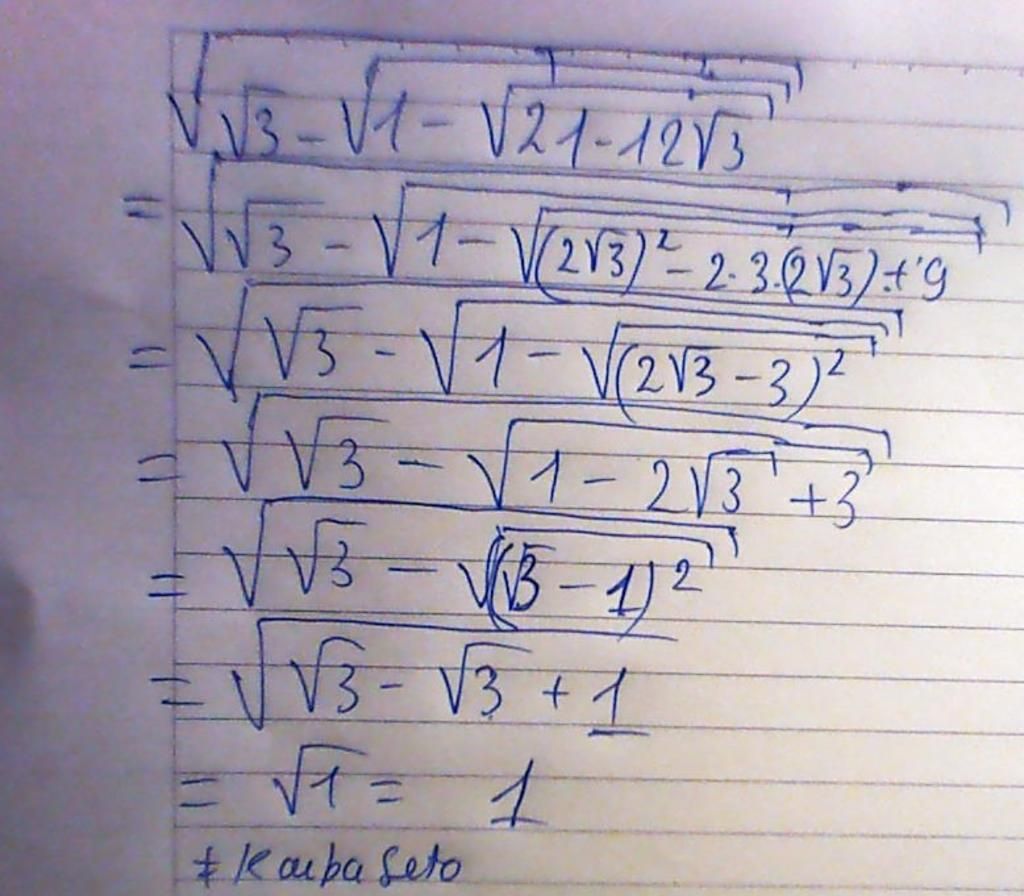 √(√3 - √(1 - √(21 - 12√3)))
= √(√3 - √(1 - √((2√3)² - 2·3·(2√3) + 9)))
= √(√3 - √(1 - √((2√3 - 3)²)))
= √(√3 - √(1 - 2√3 + 3))
= √(√3 - √((√3 - 1)²))
= √(√3 - √3 + 1)
= √1 = 1